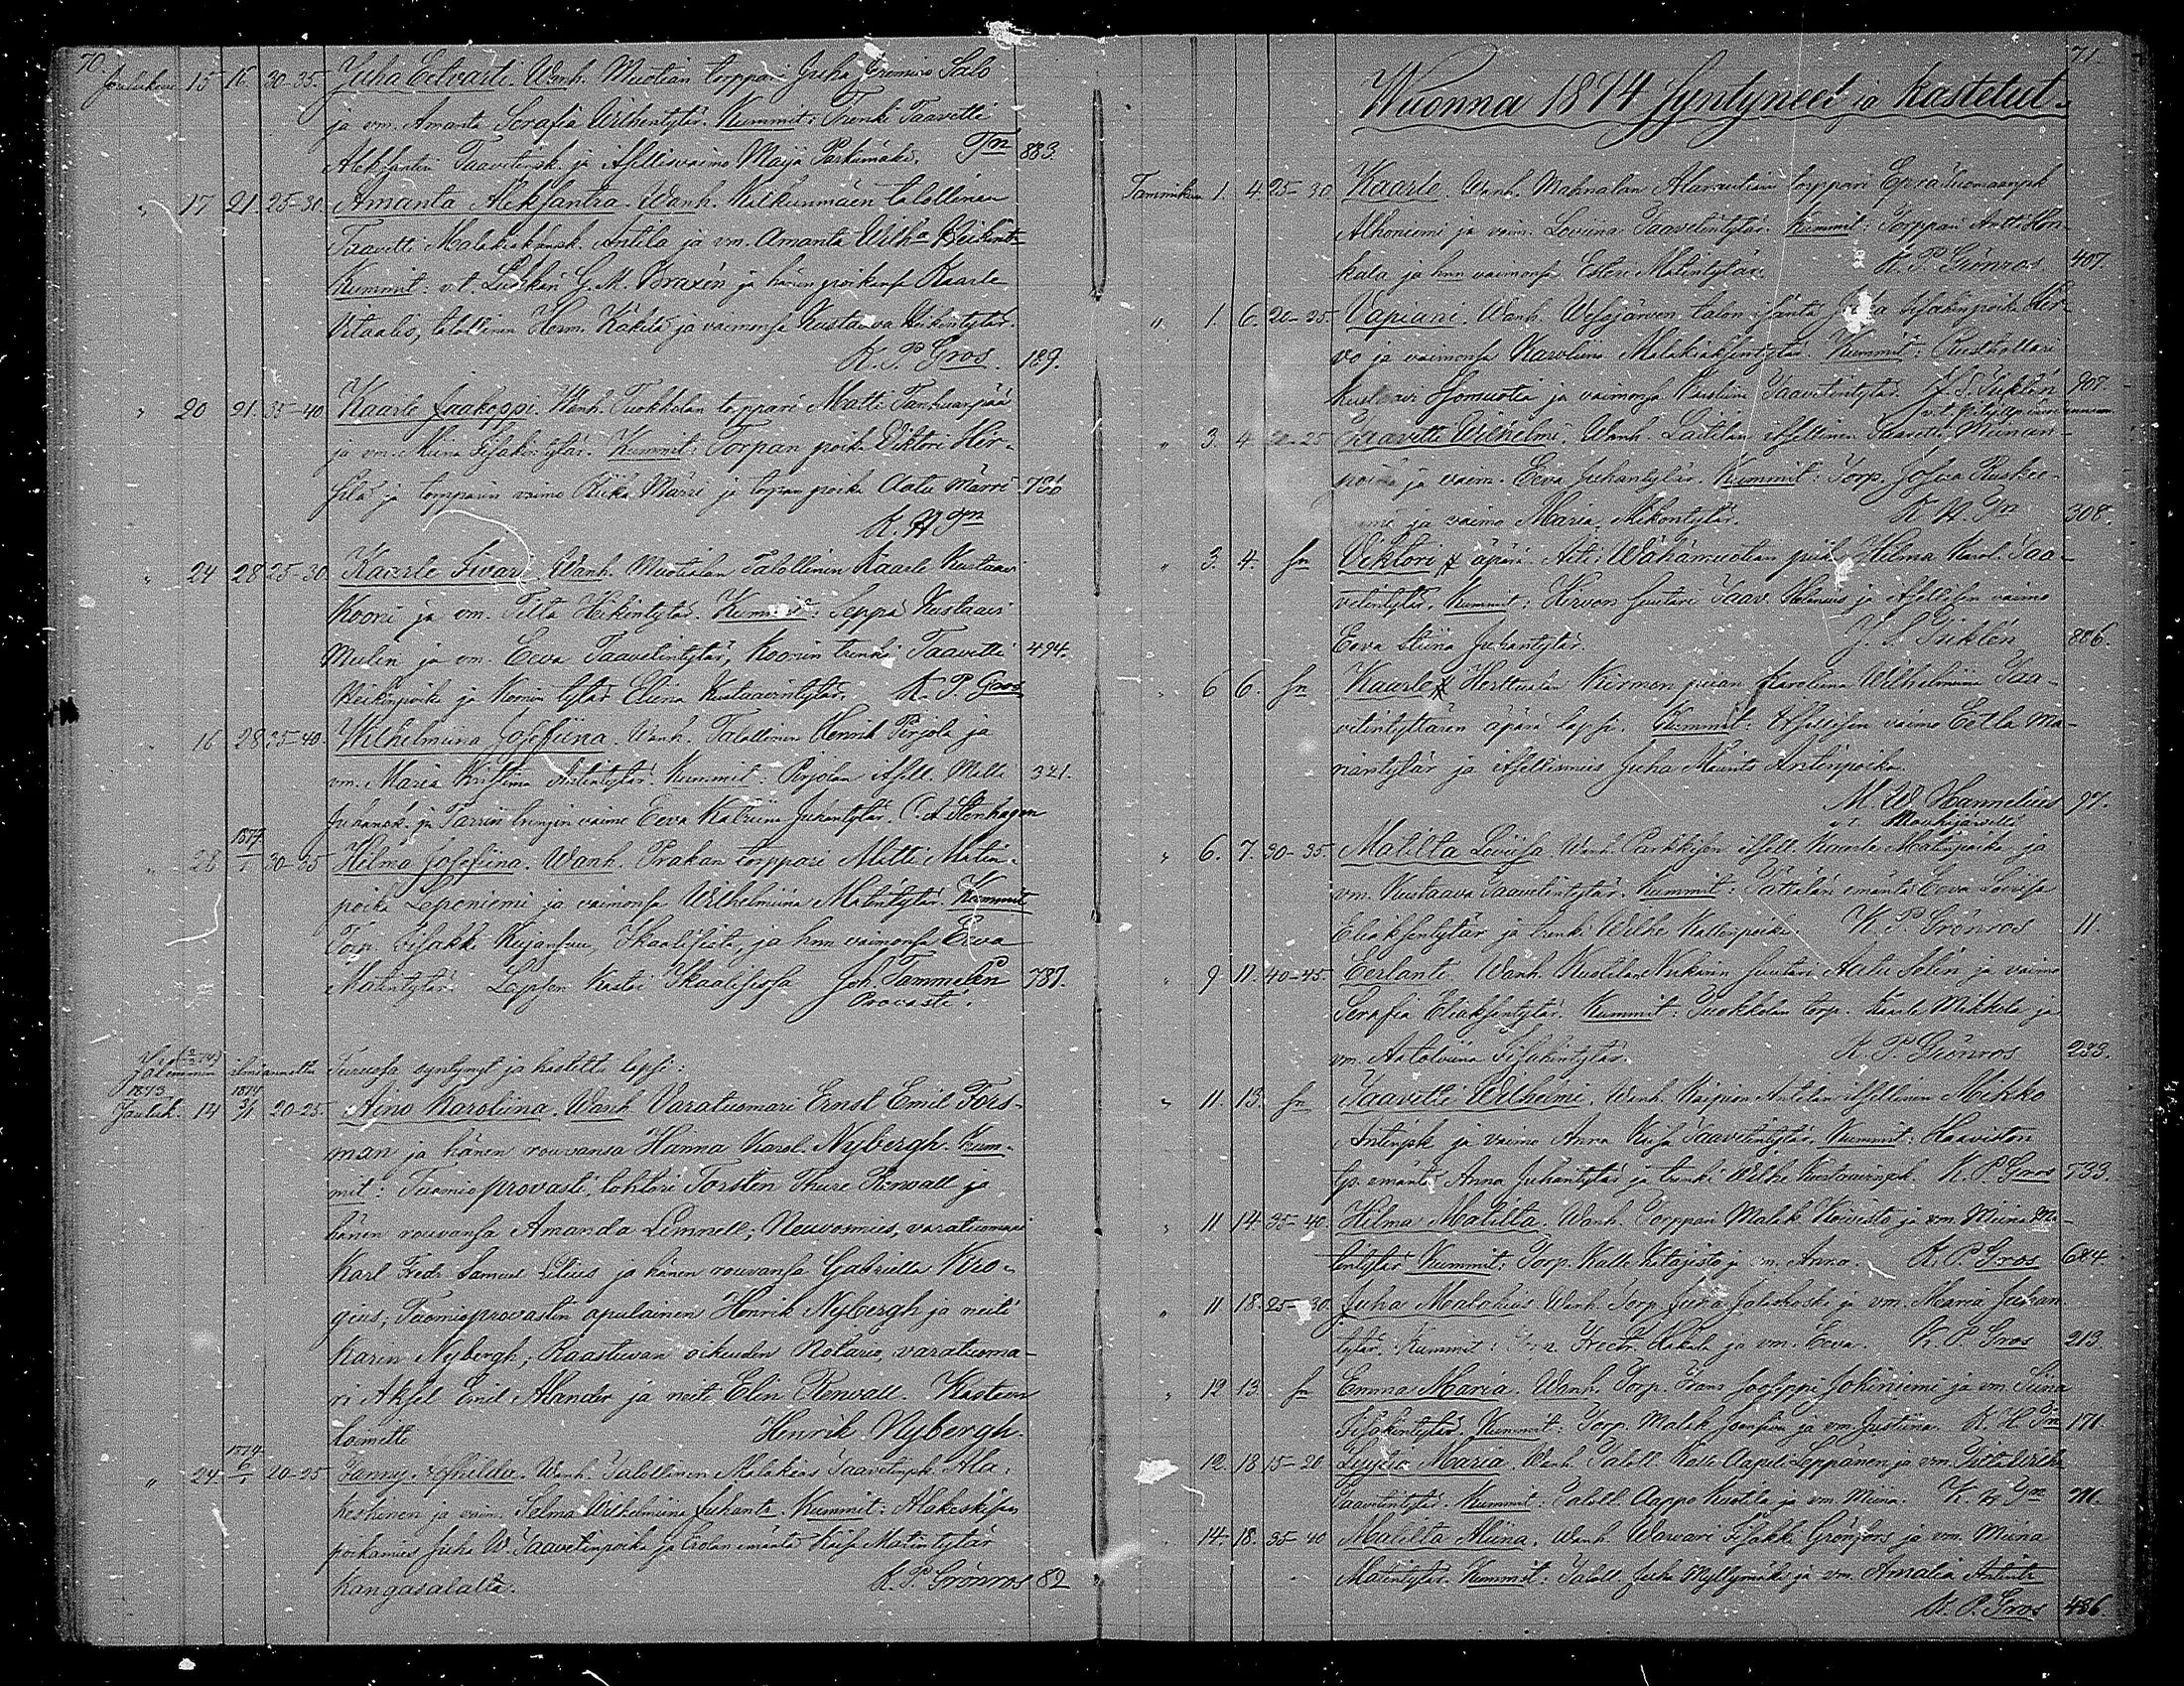 70.
Joulukuu 15 16. 30-35. Juha Eetvarti. Wanh. Muotian torppari Juha Jeremias Salo
ja vm. Amanta Serafia Wilhentytär. Kummit: Trenki Taavetti
Aleksanteri Taavetinpk. ja itsellisvaimo Maija Parkimäki. 883.
" 17 21. 25-30 Amanta Aleksantra. Wanh. talollinen
Taavetti Malakiaksenpk. Antila ja vm. Amanta Wilha Heikint.
Kummit: v.t. Lukkari G. M. Braxén ja hänen poikansa Kaarle
Vitaalis, talollinen Herm. ja vaimonsa Kustaava Heikintytär.
K. P. Gros. 189.
" 20 21. 35-40 Kaarle Jaakoppi. Wanh. Tuokkolan torppari Matti Tankuanpää
ja vm. Miina Iisakintytär. Kummit: Torpan poika Viktori Hir-
silä ja torpparin vaimo Riika Märri ja torpan poika Aatu Märri 736
K. H. Gn
" 24 28 25-30 Kaarle Iivari. Wanh. Muotialan Talollinen Kaarle Kustaa
Koori ja vm. Tilta Heikintytär. Kummit: Seppä Kustaavi
Melin ja vm. Eeva Taavetintytär, Koorin trenki Taavetti 494.
Heikinpoika ja Koorin tytär Elina Kustaavintytär. K. P. Gros
" 16 28 35-40. Wilhelmiina Josefiina. Wanh. Talollinen Henrik Perjola ja
vm. Maria Kristiina Antintytär. Kummit: Perjolan itsell. Matti 321.
Juhanpk. ja Tarrin trengin vaimo Eeva Katriina Juhantytär. C. A. Stenhagen
1874
" 28 1/1 30-35 Hilma Josefiina. Wanh. Prakan torppari Matti Matin-
poika Leponiemi ja vaimonsa Wilhelmiina Matintytär. Kummit
Torp. Iisakki Kujansuu, Ikaalisista, ja hnn vaimonsa Eeva
Matintytär. Lapsen kastoi Ikaalisissa Joh. Tammelin 787.
Provasti.
ilmiannettu Turussa syntynyt ja kastettu lapsi:
1873 1874
Jouluk. 14 3/1 20-25. Aino Karoliina. Wanh. Varatuomari Ernst Emil Fors-
man ja hänen rouvansa Hanna Karol. Nybergh. Kum-
mit: Tuomioprovasti, tohtori Torsten Thure Renvall ja
hänen rouvansa Amanda Limnell; Neuvosmies, varatuomari
Karl Fredr. Samuel Lilius ja hänen rouvansa Gabriella Kro-
gius; Tuomioprovastin apulainen Henrik Nybergh ja neiti
Karin Nybergh; Raastuvan oikeuden Notario, varatuoma-
ri Aksel Emil Alander ja neit Elin Renvall. Kasteen
toimitti Henrik Nybergh.
1874
" 24 6/1 20-25 Fanny. Wanh. Talollinen Malakias Taavetinpk. Ala-
keskinen ja vaim. Selma Wilhelmiina Juhant. Kummit: Alakeskisen
poikamies Juha W. Taavetinpoika ja Erolan emäntä Kaisa Matintytär
Kangasalalta. K. P. Grönros 82
71.
Wuonna 1874 syntyneet ja kastetut.
Tammikuu 1. 4. 25-30 Kaarle. Wanh. Mahnalan Alarautian torppari Epra Tuomaanpk
Alhoniemi ja vaim. Loviina Taavetintytär. Kummit: Torppari Antti Hon-
kala ja hnn vaimonsa Esteri Matintytär. K. P. Grönros 407.
" 1. 6. 20-25. Vapiani. Wanh. Wesajärven talon isäntä Juha Iisakinpoika Her-
vo ja vaimonsa Karoliina Malakiaksentytär. Kummit: Rusthollari
Kustaavi Isomuotia ja vaimonsa Karoliina Taavetintytär. J. S. Tuklén 907.
" 3. 4 20-25 Taavetti Wilhelmi. Wanh. Laitilan itsellinen Taavetti Miinan-
poika ja vaim. Eeva Juhantytär. Kummit: Torp. Josua Ruskee-
ja vaimo Maria Mikontytär. K. H. Gn 308.
" 3. 4. sn Viktori äpärä. Äiti: Wähämuotian piika Hilma Karol. Taa-
vetintytär. Kummit: Hirvon suutari Taav. Helenius ja itsellisen vaimo
Eeva Stiina Juhantytär. J. S. Tuklén 886.
" 6 6. sn Kaarle Herttualan Kirmon piian Karoliina Wilhelmiina Taa-
vetintyttären äpärä lapsi. Kummit: itsellisen vaimo Eetla Ma-
riantytär ja itsellismies Juha Maunts Antinpoika.
M. W. Hannelius 97.
Mouhijärvellä
" 6. 7. 30-35. Matilta Loviisa. Wanh. Parkkisen itsell. Kaarle Matinpoika ja
vm. Kustaava Taavetintytär. Kummit: Pättälän emäntä Eeva Loviisa
Eliaksentytär ja trenki Wilhe Kallenpoika. K. P. Grönros 11.
" 9. 11. 40-45. Eerlanti. Wanh. Kuotilan suutari Aatu Selin ja vaimo
Serafia Eliaksentytär. Kummit: Tuokkolan torp. Kaarle Mikkola ja
vm. Antolviina Iisakintytär. K. P. Grönros 233.
" 11. 13. sn Taavetti Wilhelmi. Wanh. Kaipion Antilan itsellinen Mikko
Antinpk ja vaimo Anna Kaisa Taavetintytär. Kummit: Haaviston
tp. emäntä Anna Juhantytär ja trenki Wilhe Kustaavinpk. K. P. Gros 533.
" 11 14. 35-40. Hilma Matilta. Wanh. Torppari Malak. Koivisto ja vm. Miina Ma-
tintytär Kummit: Torp. Kalle Katajisto ja vm. Anna. K. P. Gros 684.
" 11 18. 25-30. Juha Malakias. Wanh. Torp. Juha Jalaskoski ja vm. Maria Juhan-
tytär. Kummit: Fredr. Hakala ja vm. Eeva. K. P. Gros 213.
" 12 13. sn Emma Maria. Wanh. Torp. Frans Jooseppi Jokiniemi ja vm. Stiina
Iisakintytär. Kummit: Torp. Malak. Joensuu ja vm. Justiina. K. H. Gn 171.
" 12. 18 15-20 Lyytia Maria. Wanh. Taloll. Kalle Aapeli Leppänen ja vm. Tilta Wilha
Taavetintytär. Kummit: Taloll. Aappo Kuotila ja vm. Miina. K. H. Gn
" 14. 18. 35-40 Matilta Miina. Wanh. Warvari Iisakki Grönfors ja vm. Miina
Matintytär. Kummit: Taloll. Juha Myllymäki ja vm. Amalia Antint.
K. P. Gros 486.